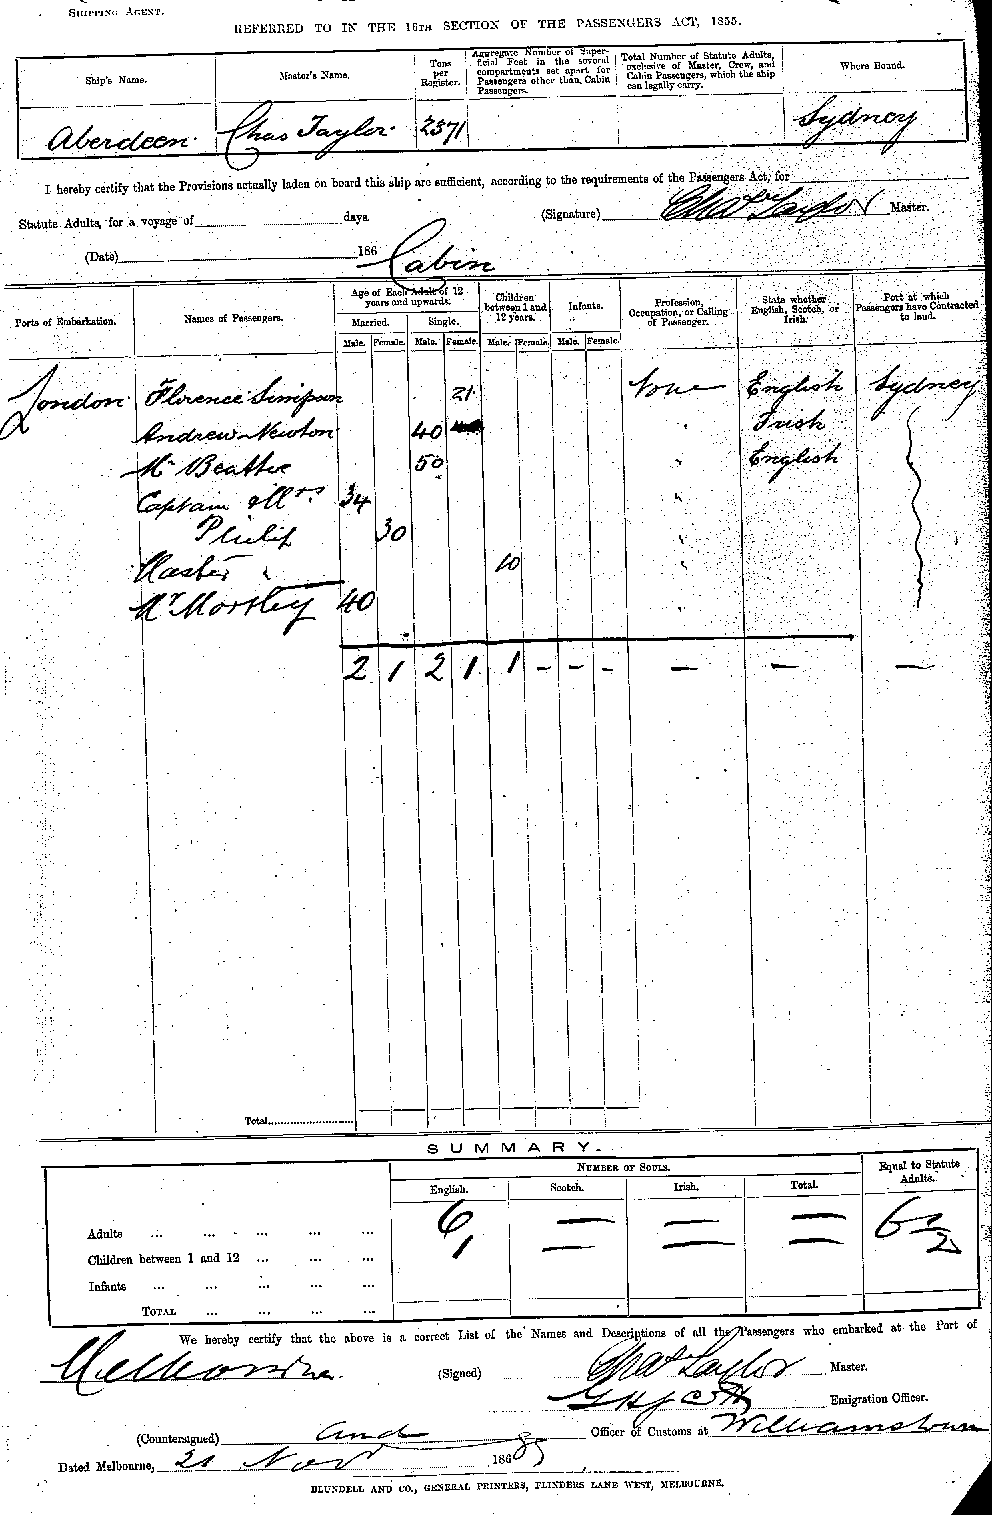 SHIPPING AGENT.
REFERRED TO IN THE 16TH SECTION OF THE PASSENGERS ACT, 1855.
Ship's Name. Master's Name. Tons per Register. Aggregate Number of Superficial Feet in the several compartments set apart for Passengers other than Cabin Passengers. Total Number of Statute Adults, exclusive of Master, Crew, and Cabin Passengers, which the ship can legally carry. Where Bound.
Aberdeen Chas Taylor 2371 Sydney
I hereby certify that the Provisions actually laden on board this ship are sufficient, according to the requirements of the Passengers Act, for
Statute Adults, for a voyage of days. (Signature) Chas Taylor Master.
(Date) 186
Cabin
Ports of Embarkation. Names of Passengers. Age of Each Adult of 12 years and upwards. Children between 1 and 12 years. Infants. Profession, Occupation, or Calling of Passenger. State whether English, Scotch, or Irish. Port at which Passengers have Contracted to land.
Married. Single.
Male. Female. Male. Female. Male. Female. Male. Female.
London Florence Simpson 21 None English Sydney
Andrew Newton 40 " Irish
Mr Beattie 50 " English
Captain & Mrs 34 "
Philip 30 "
Master " 10 "
Mr Mostley 40 "
2 1 2 1 1 - - - - - -
Total
SUMMARY.
NUMBER OF SOULS. Equal to Statute Adults.
English. Scotch. Irish. Total.
Adults ... ... ... ... ... 6 — — — 6 1/2
Children between 1 and 12 ... ... ... 1 — — —
Infants ... ... ... ... ...
TOTAL ... ... ... ...
We hereby certify that the above is a correct List of the Names and Descriptions of all the Passengers who embarked at the Port of
Melbourne. (Signed) Chas Taylor Master.
Emigration Officer.
(Countersigned) and Officer of Customs at Williamstown
Dated Melbourne, 21 Nov 186 89
BLUNDELL AND CO., GENERAL PRINTERS, FLINDERS LANE WEST, MELBOURNE.